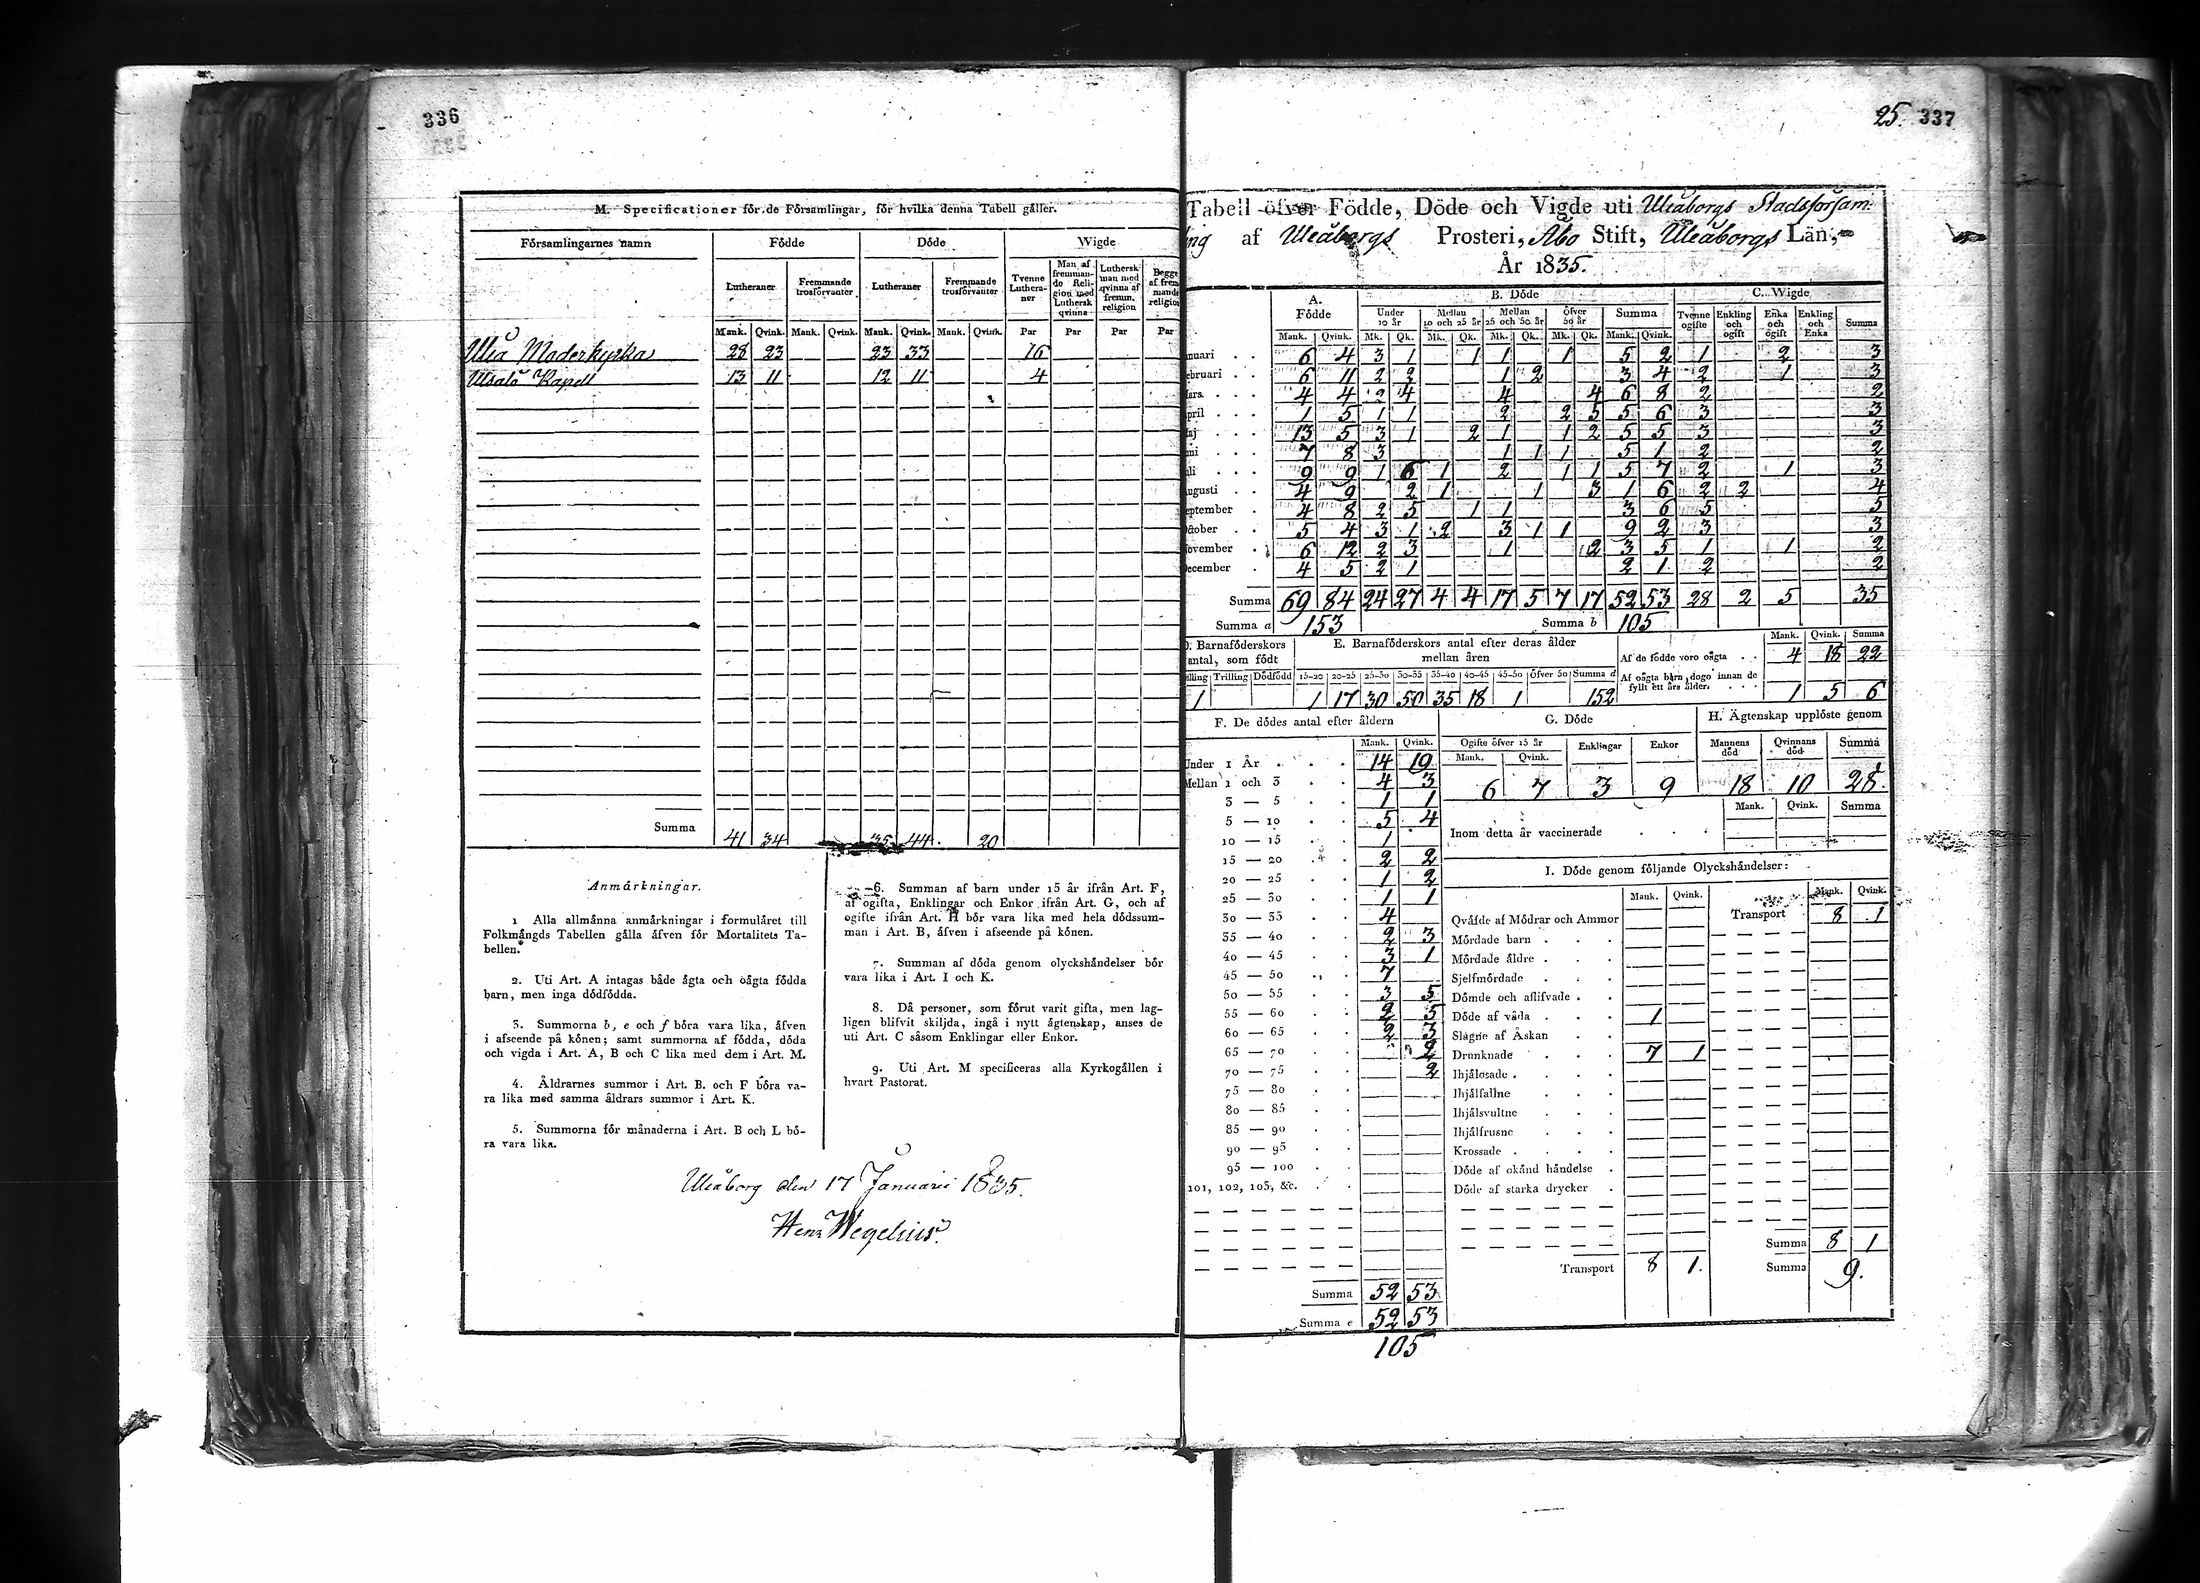 336
M. Specificationer för de Församlingar, för hvilka denna Tabell gäller.
Församlingarnes namn | Födde | Döde | Wigde
Lutheraner | Fremmande trosförvanter | Lutheraner | Fremmande trosförvanter | Tvenne Lutheraner | Man af fremmande Religion med Luthersk qvinna | Luthersk man med qvinna af fremm. religion | Begge af fremmande religion
Mank. | Qvink. | Mank. | Qvink. | Mank. | Qvink. | Mank. | Qvink. | Par | Par | Par | Par
Uleå Moderkyrka 28 23 23 33 16
Ulsalö Kapell 13 11 12 11 4
Summa 41 34 35 44 20
Anmärkningar.
1 Alla allmänna anmärkningar i formuläret till
Folkmängds Tabellen gälla äfven för Mortalitets Ta-
bellen.
2. Uti Art. A intagas både ägta och oägta födda
barn, men inga dödfödda.
3. Summorna b, e och f böra vara lika, äfven
i afseende på könen; samt summorna af födda, döda
och vigda i Art. A, B och C lika med dem i Art. M.
4. Åldrarnes summor i Art. B. och F böra va-
ra lika med samma åldrars summor i Art. K.
5. Summorna för månaderna i Art. B och L bö-
ra vara lika.
6. Summan af barn under 15 år ifrån Art. F,
af ogifta, Enklingar och Enkor ifrån Art. G, och af
ogifte ifrån Art. H bör vara lika med hela dödssum-
man i Art. B, äfven i afseende på könen.
7. Summan af döda genom olyckshändelser bör
vara lika i Art. I och K.
8. Då personer, som förut varit gifta, men lag-
ligen blifvit skiljda, ingå i nytt ägtenskap, anses de
uti Art. C såsom Enklingar eller Enkor.
9. Uti Art. M specificeras alla Kyrkogällen i
hvart Pastorat.
Uleåborg den 17 Januarii 1835.
Henr Wegelius.
25. 337
Tabell öfver Födde, Döde och Vigde uti Uleåborgs Stadsförsam-
ing af Uleåborgs Prosteri, Åbo Stift, Uleåborgs Län,
År 1835.
A. Födde | B. Döde | C. Wigde
Under 10 år | Mellan 10 och 25 år | Mellan 25 och 50 år | Öfver 50 år | Summa | Tvenne ogifte | Enkling och ogift | Enka och ogift | Enkling och Enka | Summa
Mank. | Qvink. | Mk. | Qk. | Mk. | Qk. | Mk. | Qk. | Mk. | Qk. | Mank. | Qvink.
nuari 6 4 3 1 1 1 1 5 2 1 2 3
ebruari 6 11 2 2 1 2 3 4 2 1 3
ars 4 4 2 4 4 4 6 8 2 2
pril 1 5 1 1 2 2 5 5 6 3 3
aj 13 5 3 1 2 1 1 2 5 5 3 3
ni 7 8 3 1 1 1 5 1 2 2
li 9 9 1 6 1 2 1 1 5 7 2 1 3
ugusti 4 9 2 1 1 3 1 6 2 2 4
eptember 4 8 2 5 1 1 3 6 5 5
October 5 4 3 1 2 3 1 1 9 2 3 3
ovember 6 12 2 3 1 2 3 5 1 1 2
ecember 4 5 2 1 2 1 2 2
Summa 69 84 24 27 4 4 17 5 7 17 52 53 28 2 5 35
Summa a 153 Summa b 105
D. Barnaföderskors antal, som födt
illing | Trilling | Dödfödd
1
E. Barnaföderskors antal efter deras ålder mellan åren
15-20 | 20-25 | 25-30 | 30-35 | 35-40 | 40-45 | 45-50 | Öfver 50 | Summa d
1 17 30 50 35 18 1 152
Mank. | Qvink. | Summa
Af de födde voro oägta 4 18 22
Af oägta barn dogo innan de fyllt ett års ålder 1 5 6
F. De dödes antal efter åldern
Mank. | Qvink.
Under 1 År 14 19
Mellan 1 och 3 4 3
3 — 5 1 1
5 — 10 5 4
10 — 15 1
15 — 20 2 2
20 — 25 1 2
25 — 30 1 1
30 — 35 4
35 — 40 2 3
40 — 45 3 1
45 — 50 7
50 — 55 3 5
55 — 60 2 5
60 — 65 2 3
65 — 70 2
70 — 75 2
75 — 80
80 — 85
85 — 90
90 — 95
95 — 100
101, 102, 103, &c.
Summa 52 53
Summa e 52 53
105
G. Döde
Ogifte öfver 15 år | Enklingar | Enkor
Mank. | Qvink.
6 7 3 9
H. Ägtenskap upplöste genom
Mannens död | Qvinnans död | Summa
18 10 28.
Mank. | Qvink. | Summa
Inom detta år vaccinerade
I. Döde genom följande Olyckshändelser:
Mank. | Qvink. | Mank. | Qvink.
Qväfde af Mödrar och Ammor Transport 8 1
Mördade barn
Mördade äldre
Sjelfmördade
Dömde och aflifvade
Döde af våda 1
Slagne af Åskan
Drunknade 7 1
Ihjälosade
Ihjälfallne
Ihjälsvultne
Ihjälfrusne
Krossade
Döde af okänd händelse
Döde af starka drycker
Summa 8 1
Transport 8 1. Summa 9.